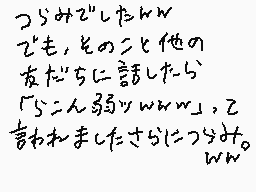 つらみでしたww
でも,そのこと他の
友だちに話したら
「らこん弱ッwww」,て
言われましたさらにつらみ。
ww